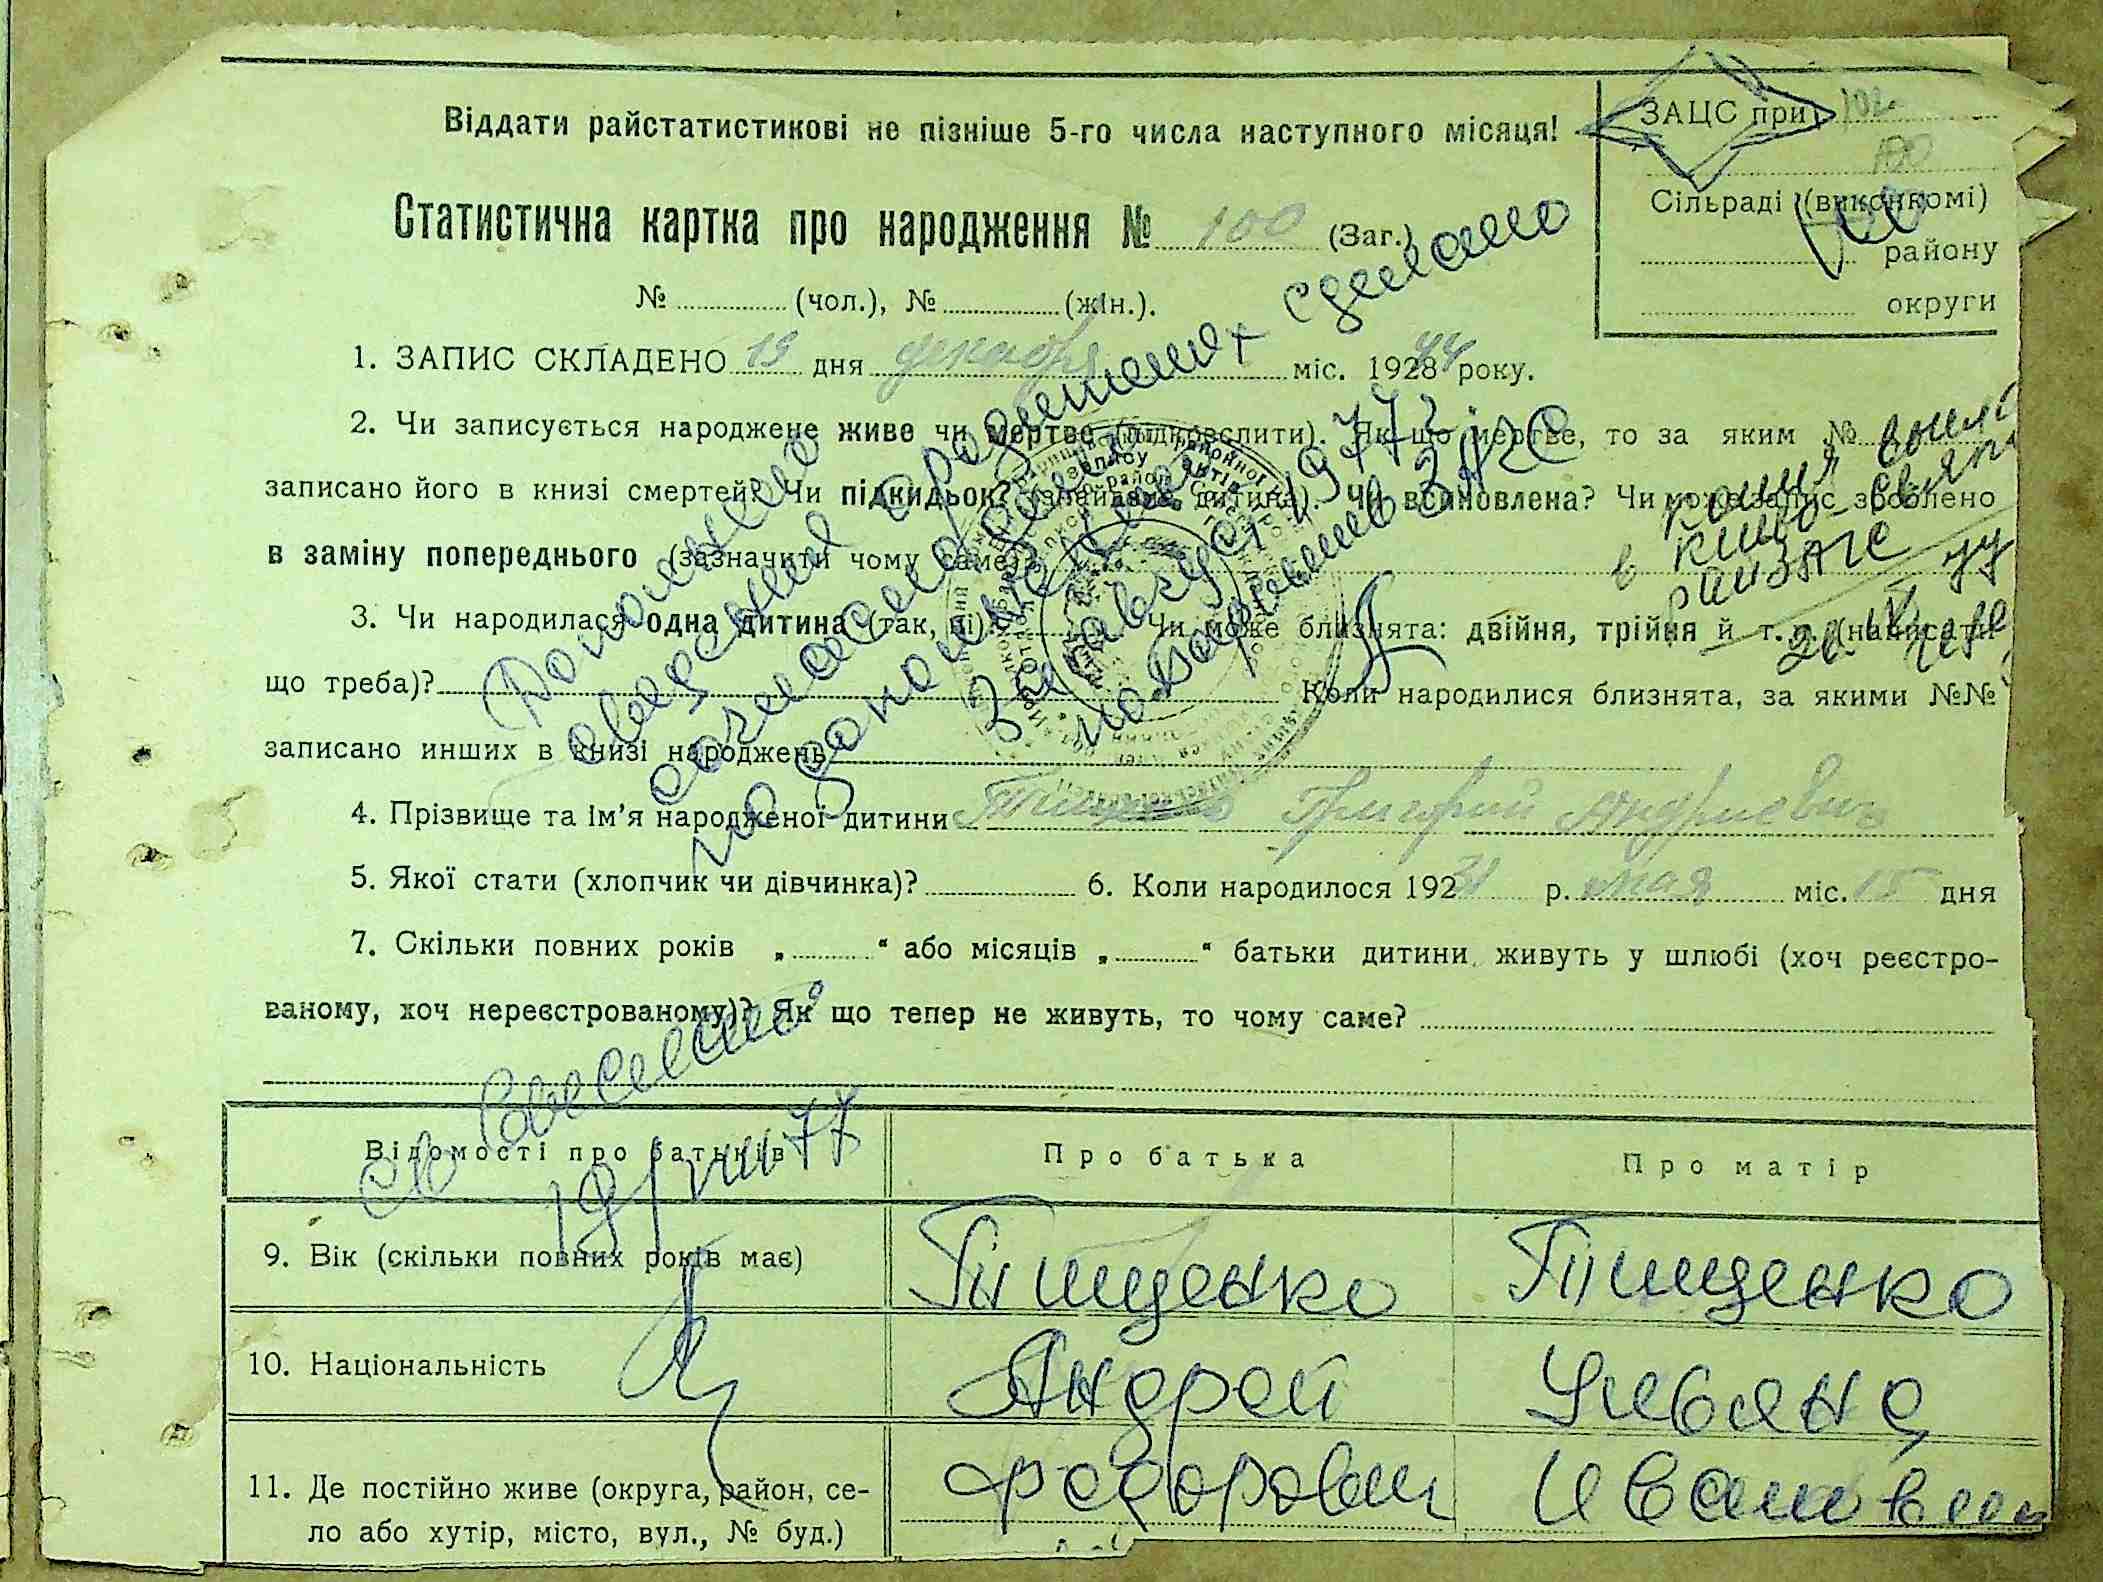 Віддати райстатистикові не пізніше 5-го числа наступного місяця!
ЗАЦС при
Сільраді (виконкомі)
району
округи
100
Статистична картка про народження № 100 (Заг.)
№ (чол.), № (жін.).
1. ЗАПИС СКЛАДЕНО 19 дня декабря міс. 1928 44 року.
2. Чи записується народжене живе чи мертве (підкреслити). Як що мертве, то за яким №
записано його в книзі смертей? Чи підкидьок? (знайдена дитина). Чи всиновлена? Чи може запис зроблено
в заміну попереднього (зазначити чому саме)
3. Чи народилася одна дитина (так, ні) Чи може близнята: двійня, трійня й т. п. (написати
що треба)? Коли народилися близнята, за якими №№
записано инших в книзі народжень
4. Прізвище та ім'я народженої дитини Тищенко Григорий Андреевич
5. Якої стати (хлопчик чи дівчинка)? 6. Коли народилося 192 31 р. мая міс. 15 дня
7. Скільки повних років „ “ або місяців „ “ батьки дитини живуть у шлюбі (хоч реєстро-
ваному, хоч нереєстрованому)? Як що тепер не живуть, то чому саме?
Дополнение
сведений о родителях сделано
согласно
3 августа 1977 г
ЗАГС
77
Відомості про батьків
Про батька
Про матір
9. Вік (скільки повних років має)
Тищенко
Тищенко
10. Національність
Андрей
Ульяна
11. Де постійно живе (округа, район, се-
ло або хутір, місто, вул., № буд.)
Федорович
Ивановна